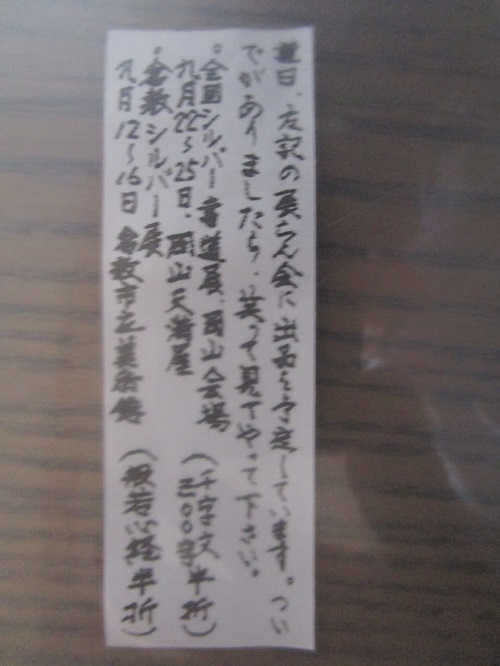 近日、左記の展らん会に出品を予定しています。つい
でがありましたら、笑って見てやって下さい。
。全国シルバー書道展、岡山会場(千字文半折)
九月22〜25日、岡山天満屋(三〇〇字)
。倉敷シルバー展
九月12〜16日倉敷市立美術館(般若心経半折)